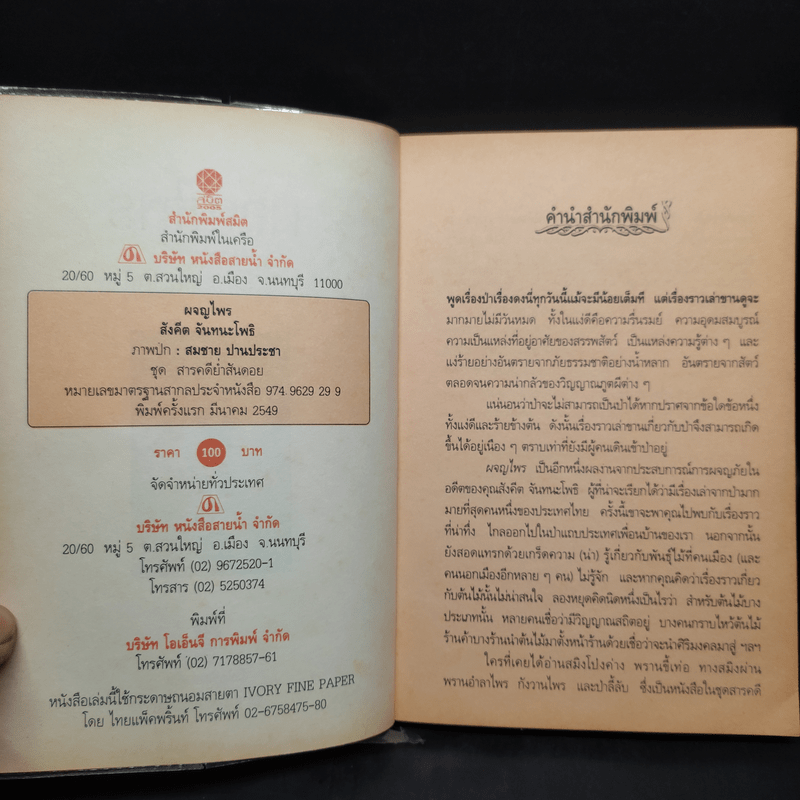 สมิต
2005
สำนักพิมพ์สมิต
สำนักพิมพ์ในเครือ
บริษัท หนังสือสายน้ำ จำกัด
20/60 หมู่ 5 ต.สวนใหญ่ อ.เมือง จ.นนทบุรี 11000
ผจญไพร
สังคีต จันทนะโพธิ
ภาพปก : สมชาย ปานประชา
ชุด สารคดีย่ำสันดอย
หมายเลขมาตรฐานสากลประจำหนังสือ 974 9629 29 9
พิมพ์ครั้งแรก มีนาคม 2549
ราคา 100 บาท
จัดจำหน่ายทั่วประเทศ
บริษัท หนังสือสายน้ำ จำกัด
20/60 หมู่ 5 ต.สวนใหญ่ อ.เมือง จ.นนทบุรี
โทรศัพท์ (02) 9672520-1
โทรสาร (02) 5250374
พิมพ์ที่
บริษัท โอเอ็นจี การพิมพ์ จำกัด
โทรศัพท์ (02) 7178857-61
หนังสือเล่มนี้ใช้กระดาษถนอมสายตา IVORY FINE PAPER
โดย ไทยแพ็คพริ้นท์ โทรศัพท์ 02-6758475-80
คำนำสำนักพิมพ์
พูดเรื่องป่าเรื่องดงนี่ทุกวันนี้แม้จะมีน้อยเต็มที แต่เรื่องราวเล่าขานดูจะ
มากมายไม่มีวันหมด ทั้งในแง่ดีคือความรื่นรมย์ ความอุดมสมบูรณ์
ความเป็นแหล่งที่อยู่อาศัยของสรรพสัตว์ เป็นแหล่งความรู้ต่าง ๆ และ
แง่ร้ายอย่างอันตรายจากภัยธรรมชาติอย่างน้ำหลาก อันตรายจากสัตว์
ตลอดจนความน่ากลัวของวิญญาณภูตผีต่าง ๆ
แน่นอนว่าป่าจะไม่สามารถเป็นป่าได้หากปราศจากข้อใดข้อหนึ่ง
ทั้งแง่ดีและร้ายข้างต้น ดังนั้นเรื่องราวเล่าขานเกี่ยวกับป่าจึงสามารถเกิด
ขึ้นได้อยู่เนือง ๆ ตราบเท่าที่ยังมีผู้คนเดินเข้าป่าอยู่
ผจญไพร เป็นอีกหนึ่งผลงานจากประสบการณ์การผจญภัยใน
อดีตของคุณสังคีต จันทนะโพธิ ผู้ที่น่าจะเรียกได้ว่ามีเรื่องเล่าจากป่ามาก
มายที่สุดคนหนึ่งของประเทศไทย ครั้งนี้เขาจะพาคุณไปพบกับเรื่องราว
ที่น่าทึ่ง ไกลออกไปในป่าแถบประเทศเพื่อนบ้านของเรา นอกจากนั้น
ยังสอดแทรกด้วยเกร็ดความ (น่า) รู้เกี่ยวกับพันธุ์ไม้ที่คนเมือง (และ
คนนอกเมืองอีกหลาย ๆ คน) ไม่รู้จัก และหากคุณคิดว่าเรื่องราวเกี่ยว
กับต้นไม้นั้นไม่น่าสนใจ ลองหยุดคิดนิดหนึ่งเป็นไรว่า สำหรับต้นไม้บาง
ประเภทนั้น หลายคนเชื่อว่ามีวิญญาณสถิตอยู่ บางคนกราบไหว้ต้นไม้
ร้านค้าบางร้านนำต้นไม้มาตั้งหน้าร้านด้วยเชื่อว่าจะนำศิริมงคลมาสู่ ฯลฯ
ใครที่เคยได้อ่านสมิงโปงค่าง พรานขี้เท่อ ทางสมิงผ่าน
พรานอำลาไพร กังวานไพร และป่าลี้ลับ ซึ่งเป็นหนังสือในชุดสารคดี